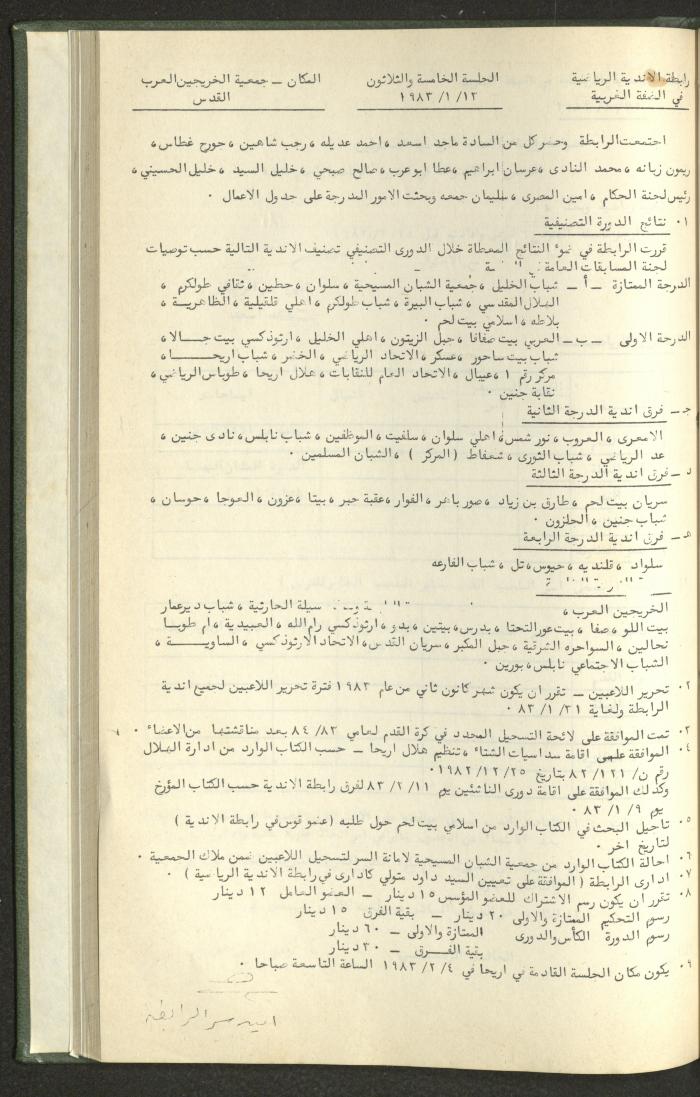 رابطة الاندية الرياضية
في الضفة الغربية
الجلسة الخامسة والثلاثون
١٢/ ١/ ١٩٨٣
المكان – جمعية الخريجين العرب
القدس
اجتمعت الرابطة وحضر كل من السادة ماجد اسعد ، احمد عديله ، رجب شاهين ، جورج غطاس ،
ريمون زبانه ، محمد النادى ، عرسان ابراهيم ، عطا ابوعرب ، صالح صبحي ، خليل السيد ، خليل الحسيني ،
رئيس لجنة الحكام ، امين المصرى ، سليمان جمعه وبحثت الامور المدرجة على جدول الاعمال ٠
٠١ نتائج الدورة التصنيفية
قررت الرابطة في ضوء النتائج المعطاة خلال الدورى التصنيفي تصنيف الاندية التالية حسب توصيات
لجنة المسابقات العامة
الدرجة الممتازة – أ – شباب الخليل ، جمعية الشبان المسيحية ، سلوان ، حطين ، ثقافي طولكرم ،
الهلال المقدسي ، شباب البيرة ، شباب طولكرم ، اهلي قلقيلية ، الظاهرية ،
بلاطه ، اسلامي بيت لحم ٠
الدرجة الاولى – ب – العربي بيت صفافا ، جبل الزيتون ، اهلي الخليل ، ارثوذكسي بيت جالا ،
شباب بيت ساحور ، عسكر ، الاتحاد الرياضي ، الخضر ، شباب اريحا ،
مركز رقم ١ ، عيبال ، الاتحاد العام للنقابات ، هلال اريحا ، طوباس الرياضي ،
نقابة جنين ٠
ج – فرق اندية الدرجة الثانية
الامعرى ، العروب ، نور شمس ، اهلي سلوان ، سلفيت ، الموظفين ، شباب نابلس ، نادى جنين ،
الرياضي ، شباب الثورى ، شعفاط ( المركز ) ، الشبان المسلمين ٠
د – فرق اندية الدرجة الثالثة
سريان بيت لحم ، طارق بن زياد ، صور باهر ، الفوار ، عقبة جبر ، بيتا ، عزون ، العوجا ، حوسان ،
شباب جنين ، الجلزون ٠
هـ – فرق اندية الدرجة الرابعة
سلواد ، قلنديه ، جيوس ، تل ، شباب الفارعه
الخريجين العرب ، سيلة الحارثية ، شباب ديرعمار
بيت اللو ، صفا ، بيت عور التحتا ، بدرس ، بيتين ، بدو ، ارثوذكسي رام الله ، العبيدية ، ام طوبا
نحالين ، السواحره الشرقية ، جبل المكبر ، سريان القدس ، الاتحاد الارثوذكسي ، الساوية ،
الشباب الاجتماعي نابلس ، بورين ٠
٠٢ تحرير اللاعبين – تقرر ان يكون شهر كانون ثاني من عام ١٩٨٣ فترة تحرير اللاعبين لجميع اندية
الرابطة ولغاية ٣١/ ١/ ٨٣ ٠
٠٣ تمت الموافقة على لائحة التسجيل المحدد في كرة القدم لعامي ٨٣/ ٨٤ بعد مناقشتها من الاعضاء ٠
٠٤ الموافقة على اقامة سداسيات الشتاء ، تنظيم هلال اريحا – حسب الكتاب الوارد من ادارة الهلال
رقم ن/ ١٢١/ ٨٢ بتاريخ ٢٥/ ١٢/ ١٩٨٢٠
وكذلك الموافقة على اقامة دورى الناشئين يوم ١١/ ٢/ ٨٣ لفرق رابطة الاندية حسب الكتاب المؤرخ
يوم ٩/ ١/ ٨٣ ٠
٠٥ تأجيل البحث في الكتاب الوارد من اسلامي بيت لحم حول طلبه ( عضو قوس في رابطة الاندية )
لتاريخ اخر ٠
٠٦ احالة الكتاب الوارد من جمعية الشبان المسيحية لامانة السر لتسجيل اللاعبين ضمن ملاك الجمعية ٠
٠٧ ادارى الرابطة ( الموافقة على تعيين السيد داود متولي كادارى في رابطة الاندية الرياضية ) ٠
٠٨ تقرر ان يكون رسم الاشتراك للعضو المؤسس ١٥ دينار – العضو العامل ١٢ دينار
رسوم التحكيم الممتازة والاولى ٢٠ دينار – بقية الفرق ١٥ دينار
رسوم الدورة الكأس والدورى الممتازة والاولى – ٦٠ دينار
بقية الفرق – ٣٠ دينار
٠٩ يكون مكان الجلسة القادمة في اريحا في ٤/ ٢/ ١٩٨٣ الساعة التاسعة صباحا ٠
امين سر الرابطة